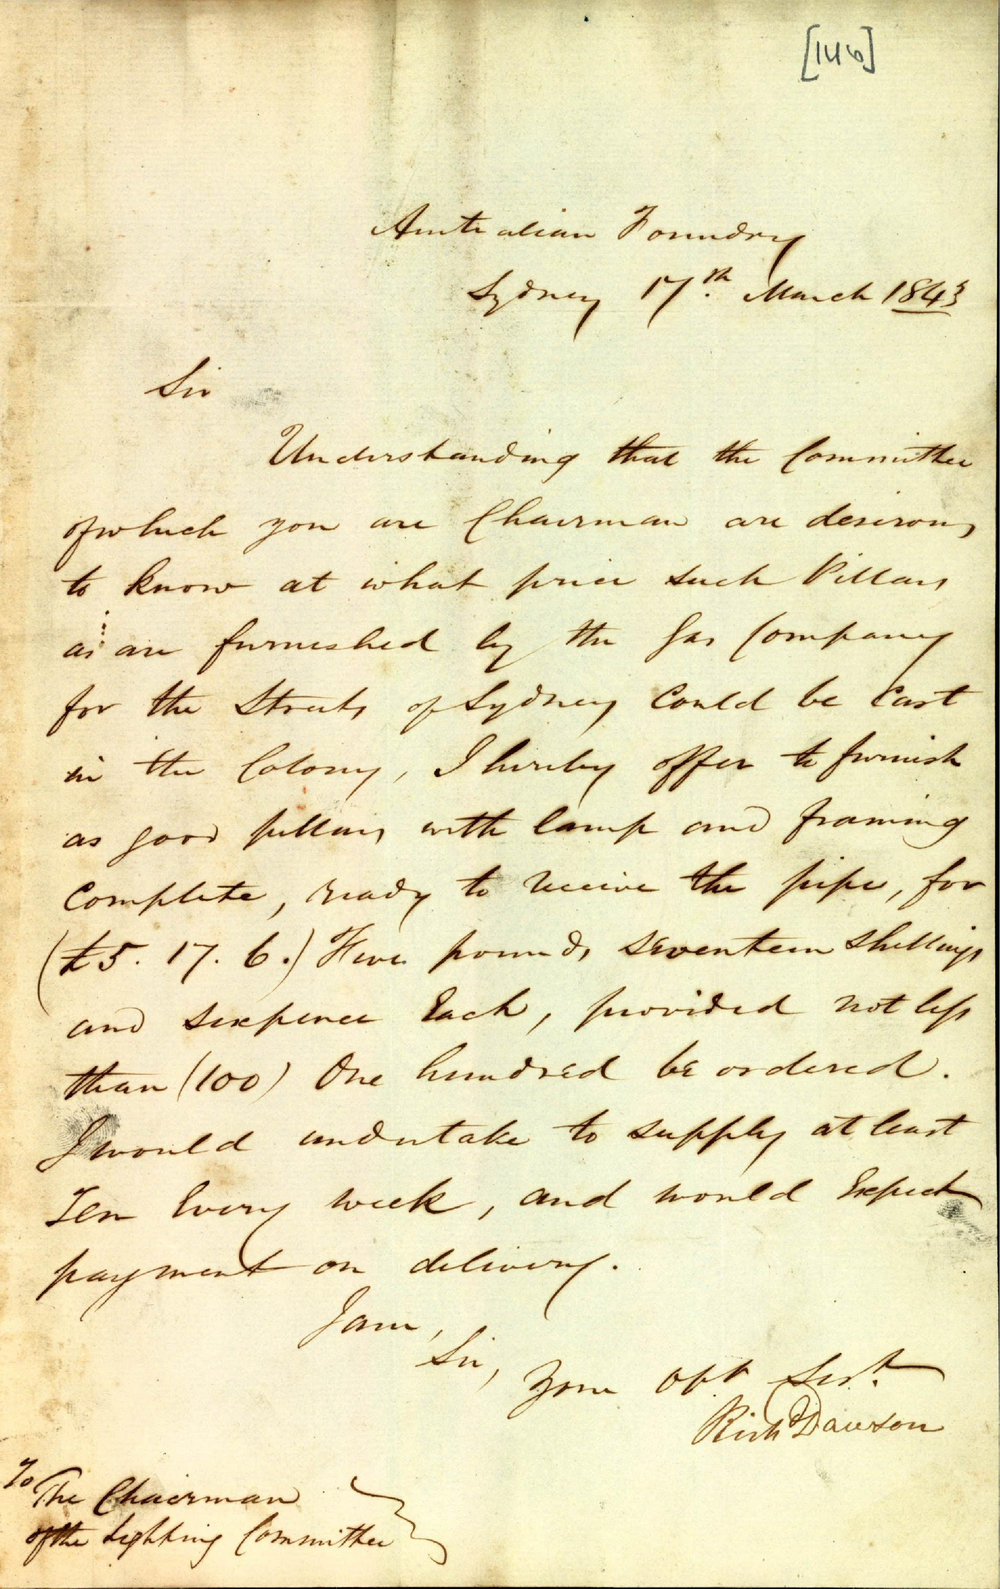 [146]
Australian Foundry
Sydney 17th. March 1843
Sir
Understanding that the Committee
of which you are Chairman are desirous
to know at what price such Pillars
as are furnished by the Gas Company
for the Streets of Sydney could be Cast
in the Colony, I hereby offer to furnish
as good pillars with lamp and framing
Complete, ready to receive the pipe, for
(£5. 17. 6.) Five pounds seventeen shillings
and sixpence Each, provided not less
than (100) One hundred be ordered.
I would undertake to supply at least
Ten Every week, and would Expect
payment on delivery.
I am,
Sir,
Your Obt Servt.
Richd Dawson
To
The Chairman
of the Lighting Committee